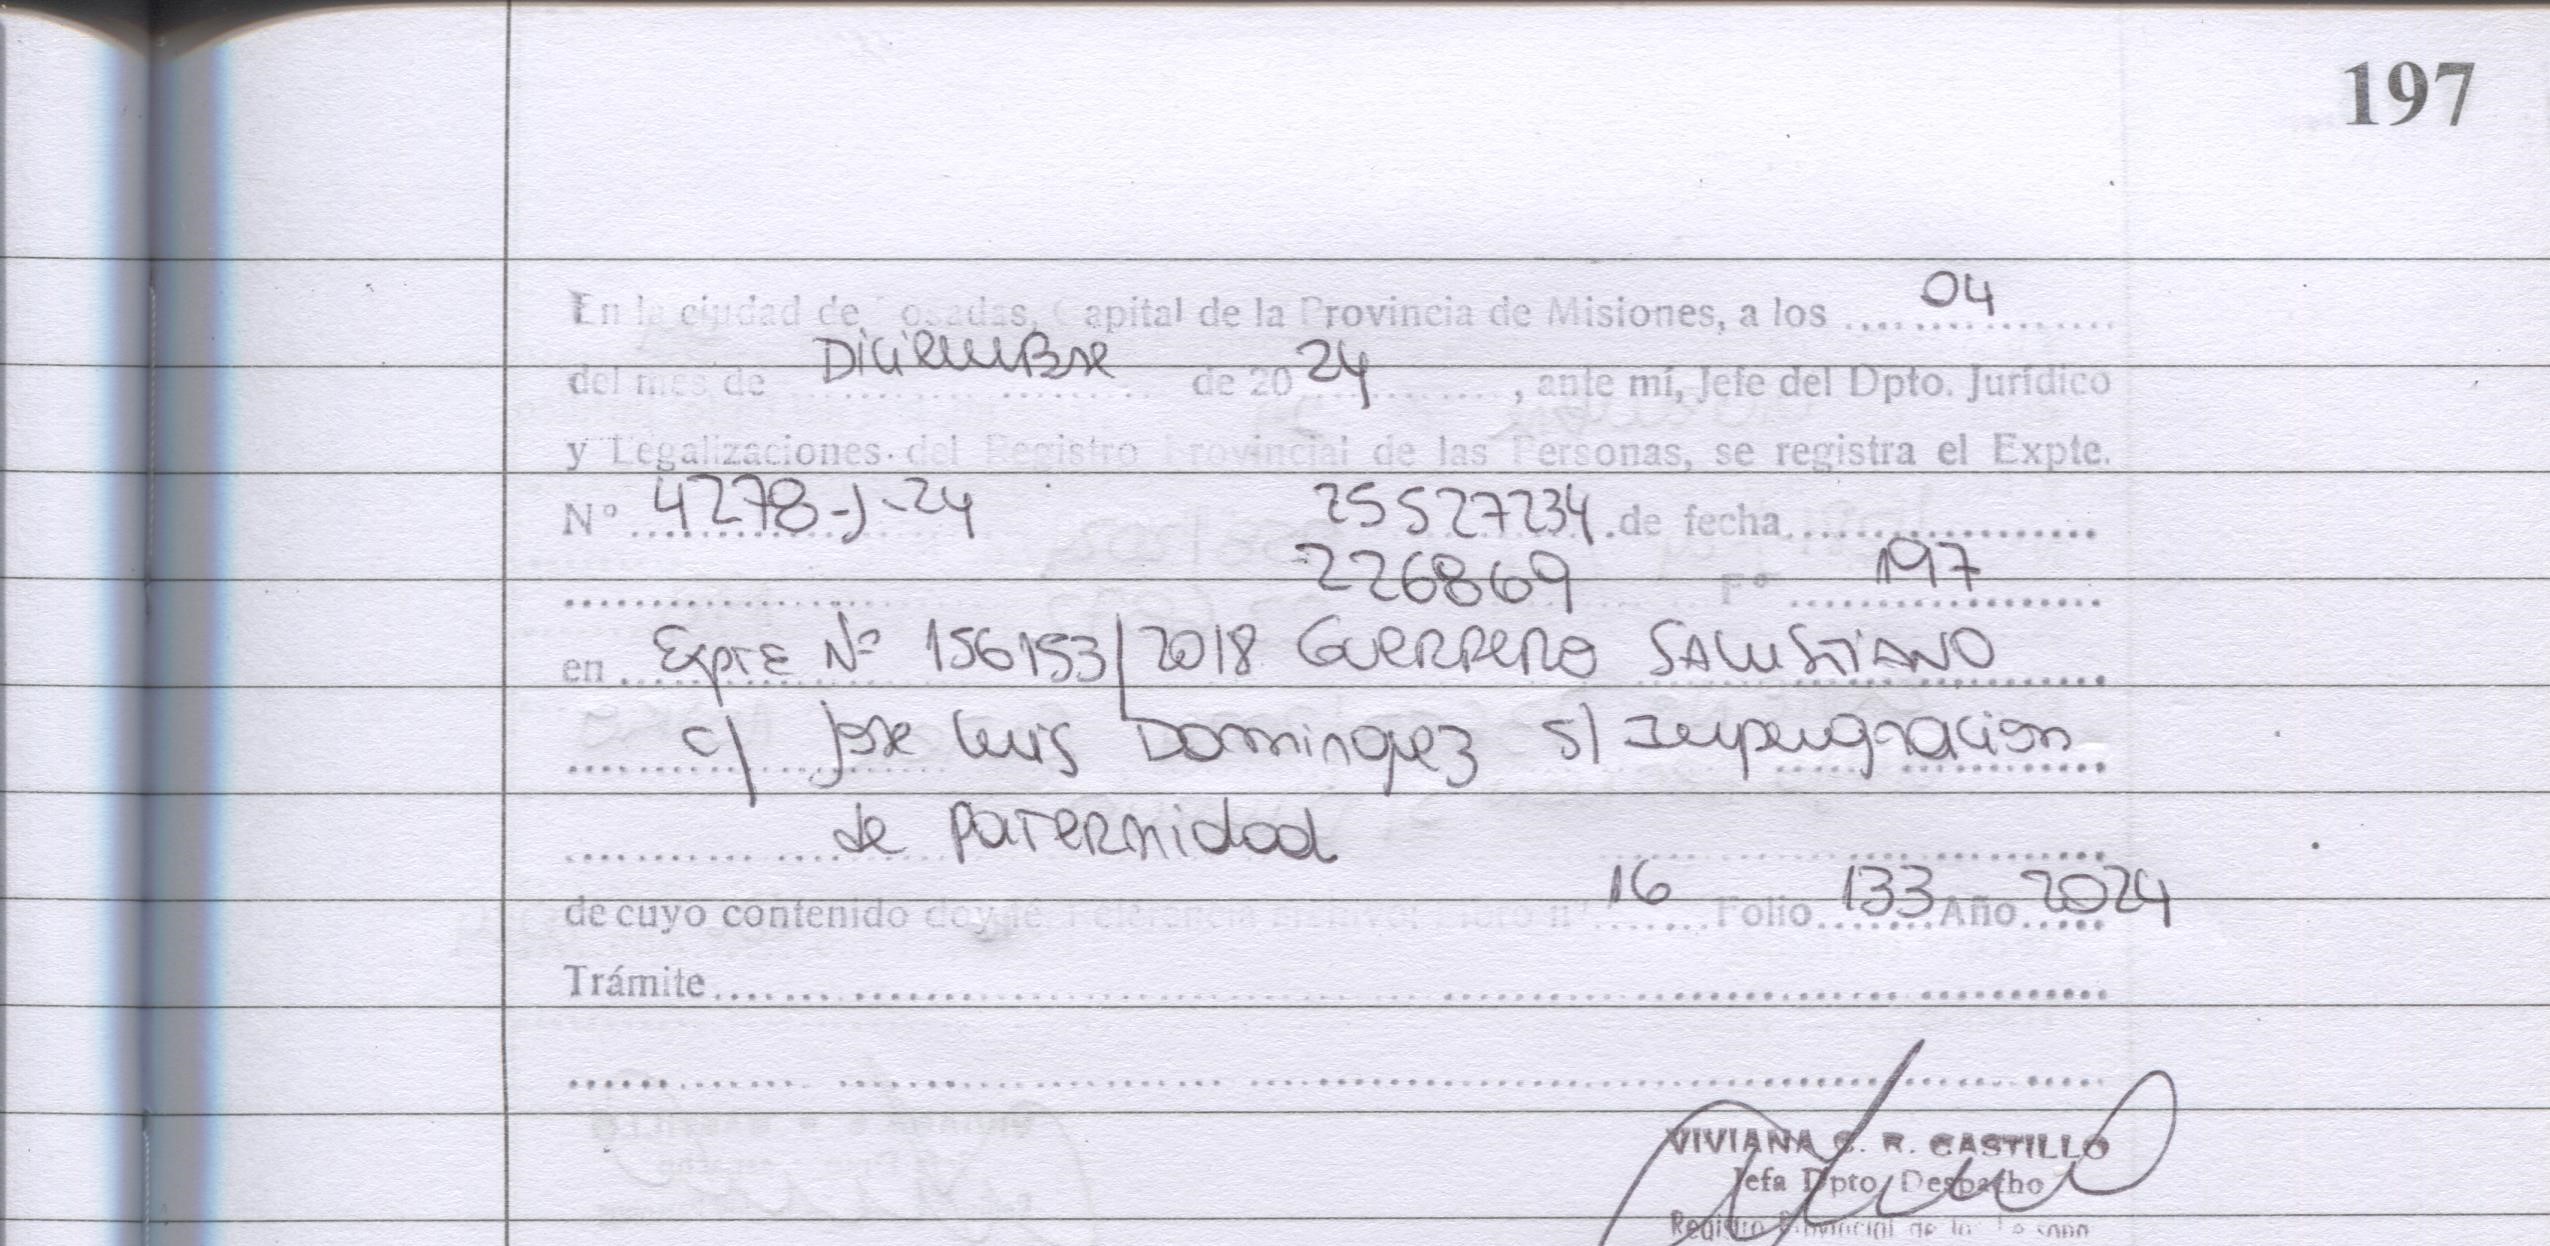 197
En la ciudad de Posadas, Capital de la Provincia de Misiones, a los 04
del mes de Diciembre de 2024, ante mí, Jefe del Dpto. Jurídico
y Legalizaciones del Registro Provincial de las Personas, se registra el Expte.
N° 4278-J-24 25527234 de fecha
226869 F° 197
en Expte Nº 156153/2018 Guerrero Salustiano
c/ Jose Luis Dominguez s/ Impugnacion
de Paternidad
de cuyo contenido doy fé Referencia Libro n° 16 Folio 133 Año 2024
Trámite
VIVIANA C. R. CASTILLO
Jefa Dpto Despacho
Registro Provincial de las Personas